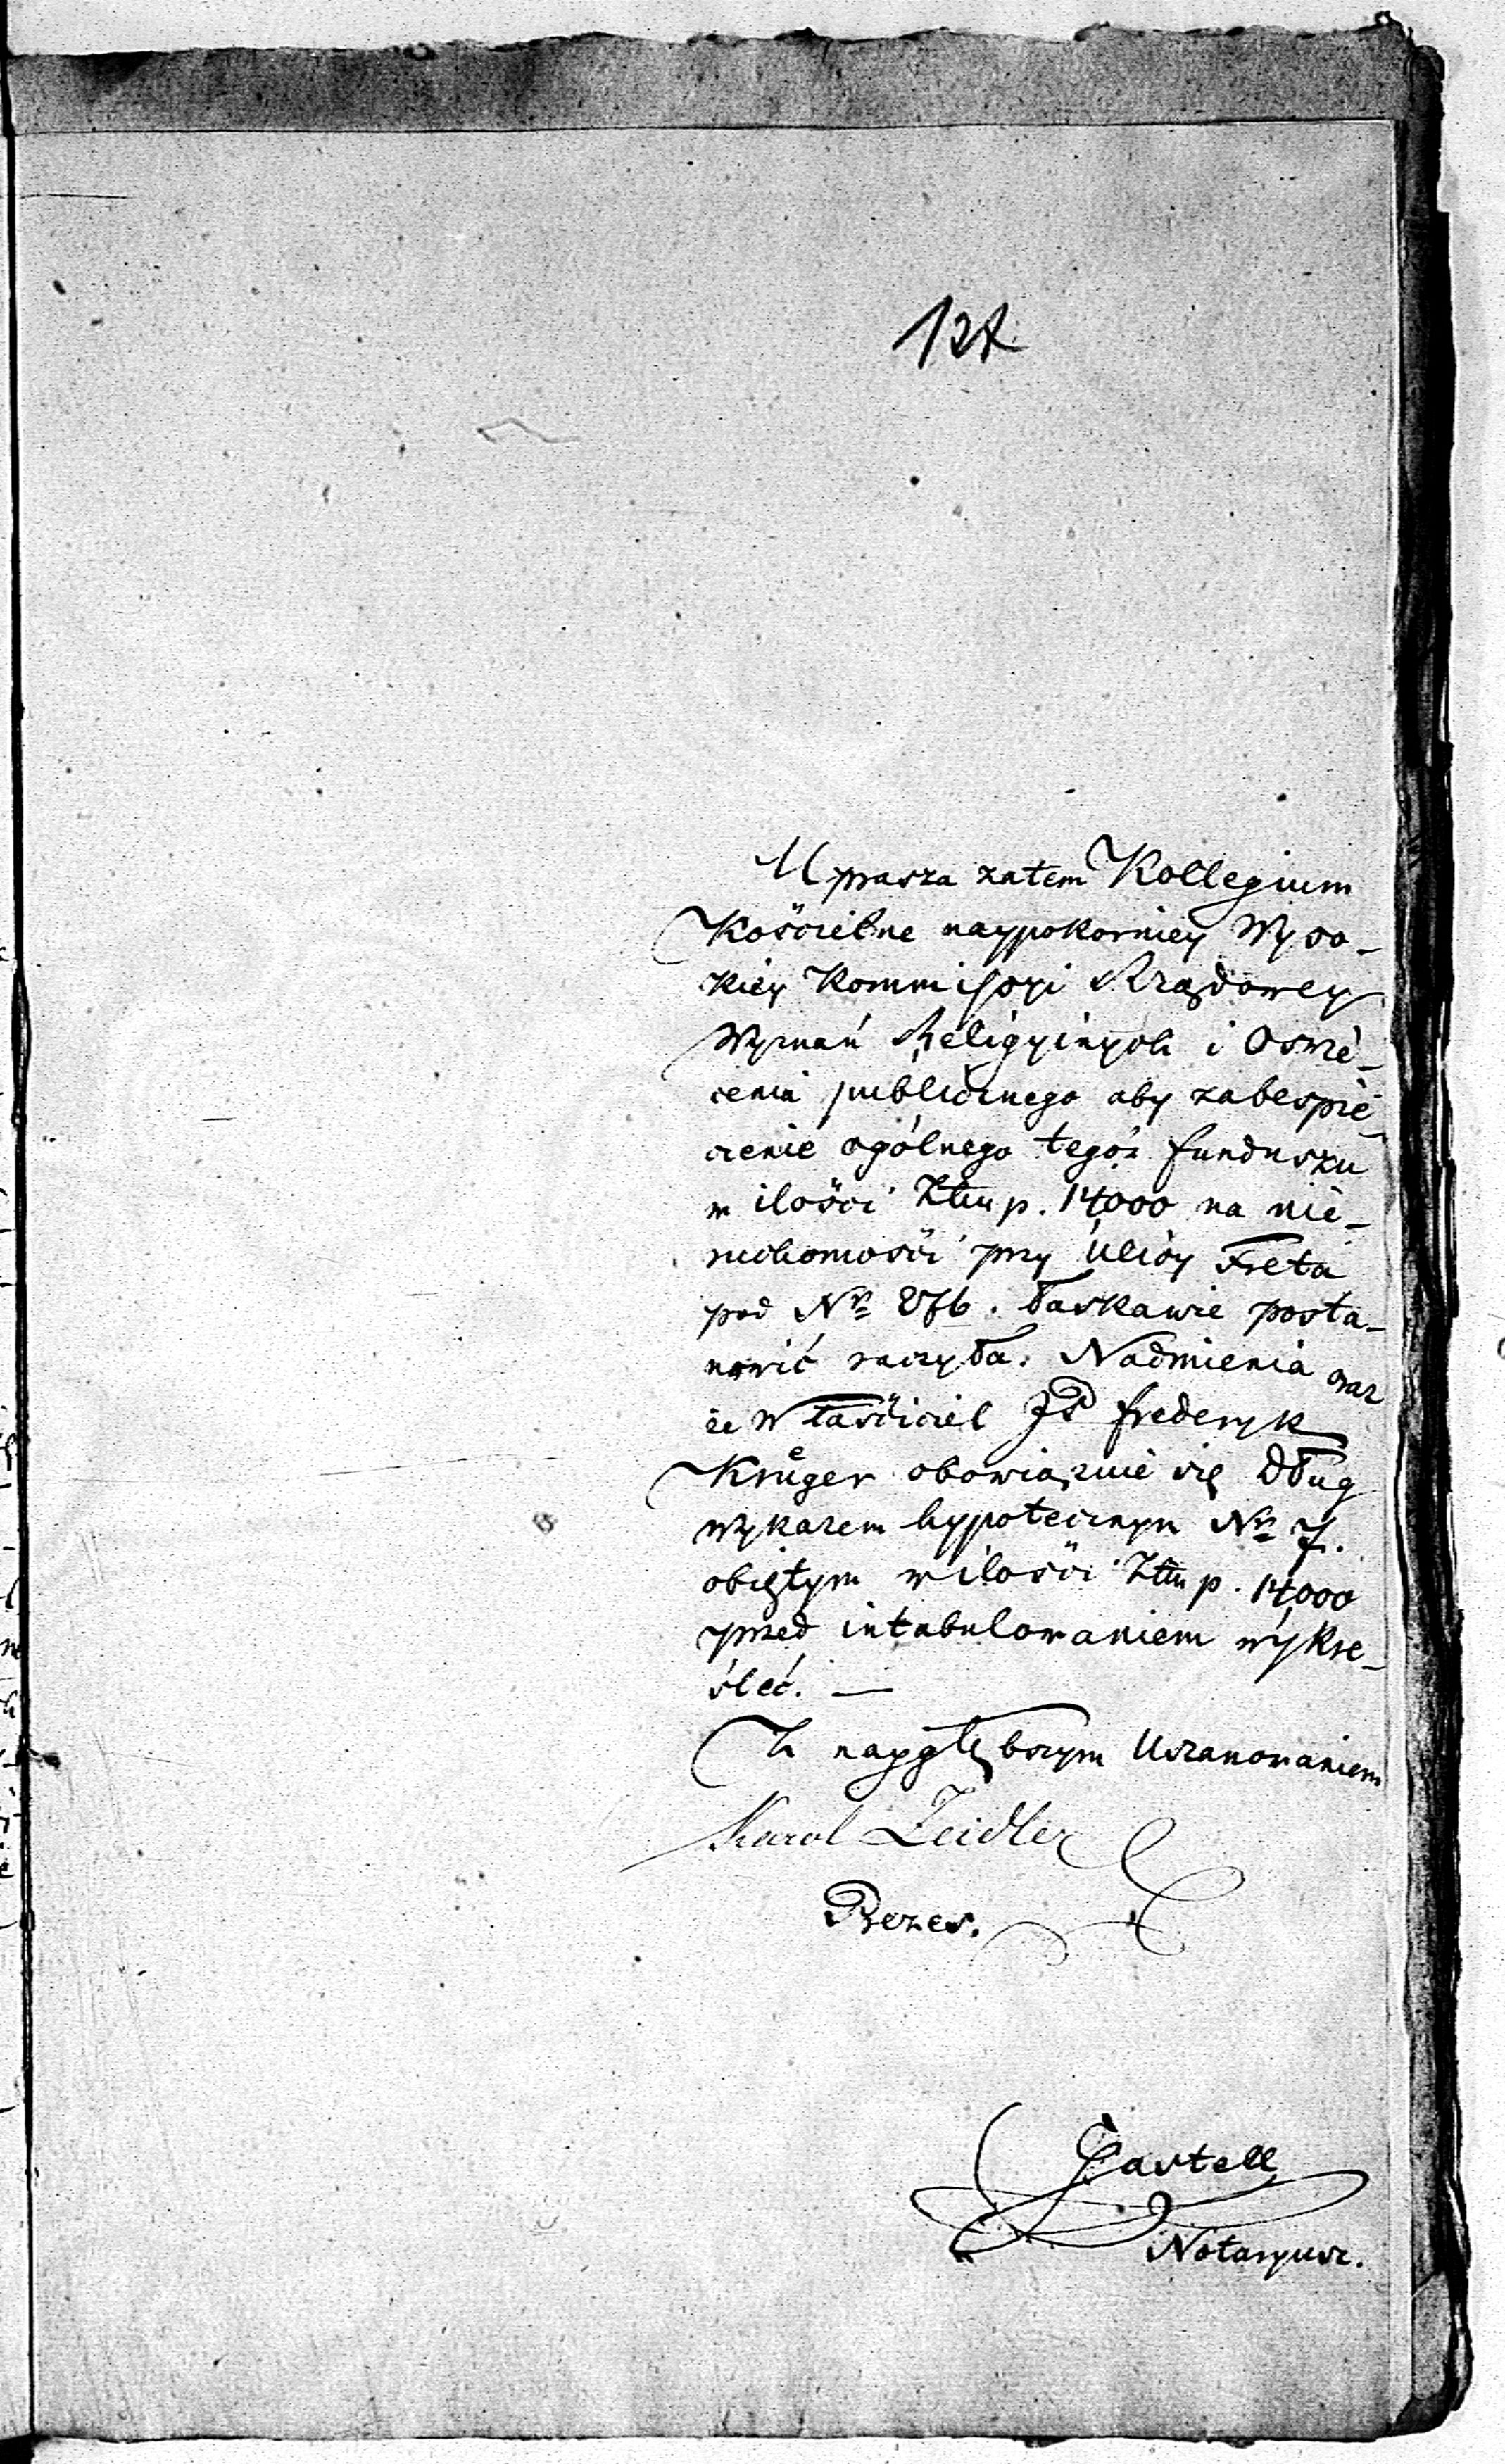 127
Uprasza zatem Kollegium
Kościelne naypokorniey Wyso-
kiey Kommissyi Rządowey
Wyznań Religyinych i Oswie-
cenia publicznego aby zabespie-
czenie ogólnego tegoż funduszu
w ilości Złtu p. 14000 na nie-
ruchomości przy Ulicy Freta
pod Nro 276. łaskawie posta-
nowić raczyła. Nadmienia oraz
że Właściciel JP Frederyk
Krüger obowiązuie się Dług
wykazem hypotecznym Nro 7.
obiętym w ilości Złtu p. 14000
przed intabulowaniem wykre-
ślić. —
Z naygłębszym Uszanowaniem
Karol Zeidler
Prezes.
Castell
Notaryusz.